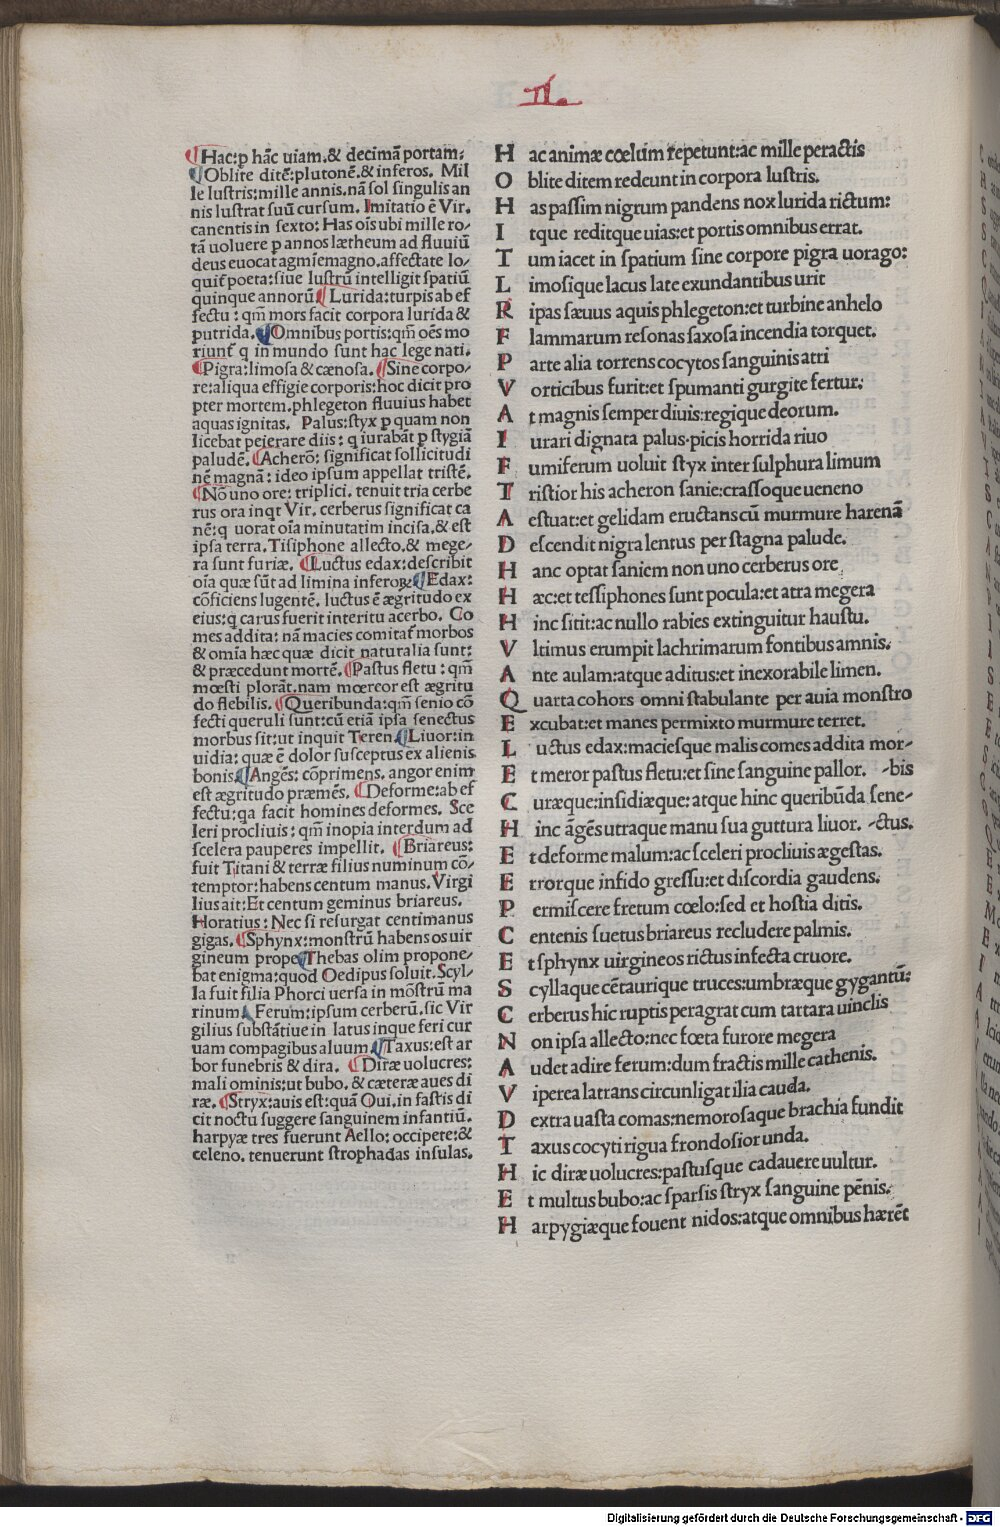 II.
¶Hac:p hãc uiam.& decimã portam:
¶Oblite ditẽ:plutonẽ.& inferos. Mil
le luſtris:mille annis.nã ſol ſingulis an
nis luſtrat ſuũ curſum. Imitatio ẽ Vir.
canentis in ſexto: Has oĩs ubi mille ro-
tã uoluere p annos lætheum ad fluuiũ
deus euocat agmĩe magno.affectate lo-
quit̃ poeta:ſiue luſtrũ intelligit ſpatiũ
quinque annorũ ¶Lurida:turpis ab ef
fectu : qm̃ mors facit corpora lurida &
putrida. ¶Omnibus portis:qm̃ oẽs mo
riunt̃ q in mundo ſunt hac lege nati.
¶Pigra:limoſa & cænoſa. ¶Sine corpo-
re:aliqua effigie corporis:hoc dicit pro
pter mortem.phlegeton fluuius habet
aquas ignitas. Palus:ſtyx p quam non
licebat peierare diis : q iurabãt p ſtygiã
paludẽ. ¶Acherõ: ſignificat ſollicitudi
nẽ magnã: ideo ipſum appellat triſtẽ.
¶Nõ uno ore: triplici. tenuit tria cerbe
rus ora inqt Vir. cerberus ſignificat ca
nẽ:q uorat oĩa minutatim inciſa.& eſt
ipſa terra.Tiſiphone allecto.& mege-
ra ſunt furiæ. ¶Luctus edax:deſcribit
oĩa quæ ſũt ad limina inferoꝝ ¶Edax:
cõficiens lugentẽ. luctus ẽ ægritudo ex
eius:q carus fuerit interitu acerbo. Co
mes addita: nã macies comitat̃ morbos
& omĩa hæc quæ dicit naturalia ſunt:
& præcedunt mortẽ. ¶Paſtus fletu : qm̃
mœſti plorãt.nam mœrcor eſt ægritu
do flebilis. ¶Queribunda:qm̃ ſenio cõ
fecti queruli ſunt:cũ etiã ipſa ſenectus
morbus ſit:ut inquit Teren. ¶Liuor:in
uidia: quæ ẽ dolor ſuſceptus ex alienis
bonis. ¶Angẽs: cõprimens. angor enim
eſt ægritudo præmẽs. ¶Deforme:ab ef
fectu:qa facit homines deformes. Sce
leri procliuis : qm̃ inopia interdum ad
ſcelera pauperes impellit. ¶Briareus:
fuit Titani & terræ filius numinum cõ-
temptor:habens centum manus. Virgi
lius ait:Et centum geminus briareus.
Horatius : Nec ſi reſurgat centimanus
gigas. ¶Sphynx:monſtrũ habens os uir
gineum prope ¶Thebas olim propone-
bat enigma:quod Oedipus ſoluit.Scyl-
la fuit filia Phorci uerſa in mõſtrũ ma
rinum ¶Ferum:ipſum cerberũ.ſic Vir
gilius ſubſtãtiue in latus inque feri cur
uam compagibus aluum ¶Taxus:eſt ar
bor funebris & dira. ¶Diræ uolucres:
mali ominis:ut bubo. & cæteræ aues di
ræ. ¶Stryx:auis eſt:quã Oui.in faſtis di
cit noctu ſuggere ſanguinem infantiũ.
harpyæ tres fuerunt Aello: occipete:&
celeno. tenuerunt ſtrophadas inſulas.
H ac animæ cœlũm repetunt:ac mille peractis
O blite ditem redeunt in corpora luſtris.
H as paſſim nigrum pandens nox lurida rictum:
I tque reditque uias:et portis omnibus errat.
T um iacet in ſpatium ſine corpore pigra uorago:
L imoſique lacus late exundantibus urit
R ipas ſæuus aquis phlegeton:et turbine anhelo
F lammarum reſonas ſaxoſa incendia torquet.
P arte alia torrens cocytos ſanguinis atri
V orticibus furit:et ſpumanti gurgite fertur:
A t magnis ſemper diuis:regique deorum.
I urari dignata palus.picis horrida riuo
F umiferum uoluit ſtyx inter ſulphura limum
T riſtior his acheron ſanie:craſſoque ueneno
A eſtuat:et gelidam eructans cũ murmure harenã
D eſcendit nigra lentus per ſtagna palude.
H anc optat ſaniem non uno cerberus ore
H æc:et teſſiphones ſunt pocula:et atra megera
H inc ſitit:ac nullo rabies extinguitur hauſtu.
V ltimus erumpit lachrimarum fontibus amnis.
A nte aulam:atque aditus:et inexorabile limen.
Q uarta cohors omni ſtabulante per auia monſtro
E xcubat:et manes permixto murmure terret.
L uctus edax:macieſque malis comes addita mor-
E t meror paſtus fletu:et ſine ſanguine pallor. -bis
C uræque:inſidiæque: atque hinc queribũda ſene-
H inc ãgẽs utraque manu ſua guttura liuor. -ctus.
E t deforme malum:ac ſceleri procliuis ægeſtas.
E rrorque infido greſſu:et diſcordia gaudens.
P ermiſcere fretum cœlo:ſed et hoſtia ditis.
C entenis ſuetus briareus recludere palmis.
E t ſphynx uirgineos rictus infecta cruore.
S cyllaque cẽtaurique truces:umbræque gygantũ:
C erberus hic ruptis peragrat cum tartara uinclis
N on ipſa allecto:nec fœta furore megera
A udet adire ferum:dum fractis mille cathenis.
V iperea latrans circunligat ilia cauda.
D extra uaſta comas:nemoroſaque brachia fundit
T axus cocyti rigua frondoſior unda.
H ic diræ uolucres:paſtuſque cadauere uultur.
E t multus bubo:ac ſparſis ſtryx ſanguine pẽnis.
H arpygiæque fouent nidos:atque omnibus hærẽt
Digitalisierung gefördert durch die Deutsche Forschungsgemeinschaft - DFG